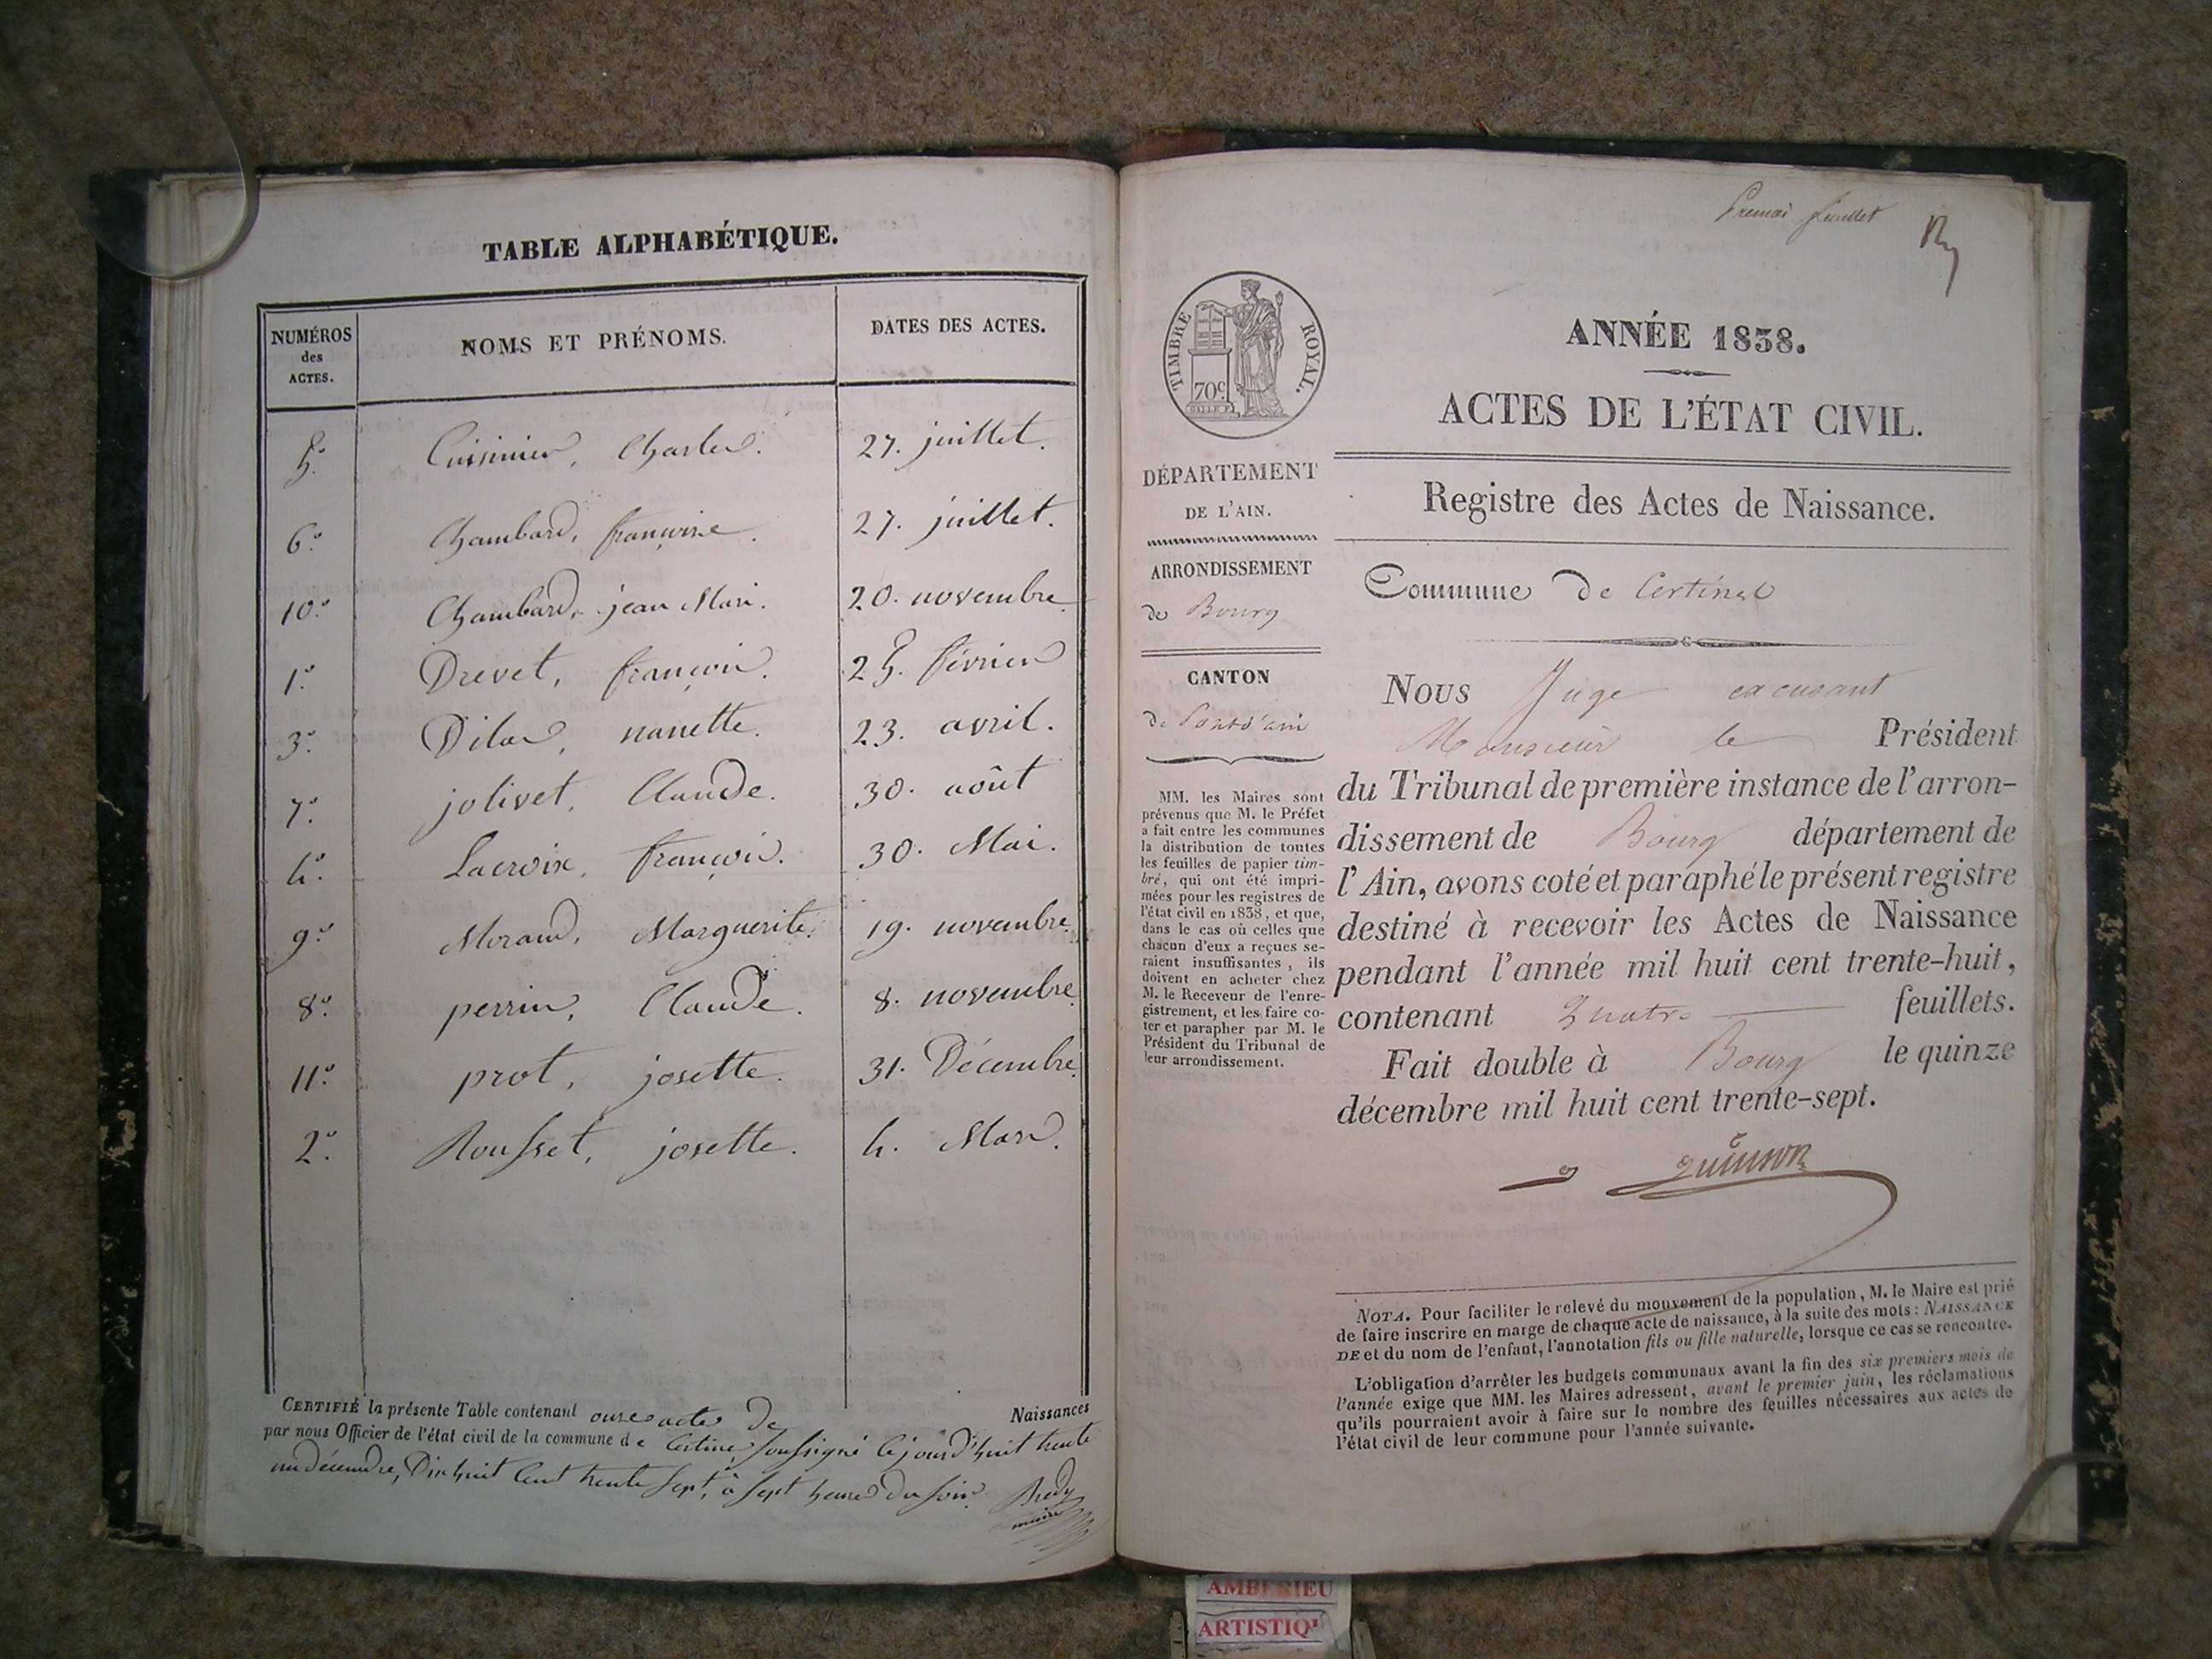 TABLE ALPHABÉTIQUE.
NUMÉROS des ACTES. NOMS ET PRÉNOMS. DATES DES ACTES.
5.° Cuisinier, Charles. 27. juillet.
6.° Chambard, françoise. 27. juillet.
10.° Chambard, jean Mari. 20. novembre
1.° Drevet, françois. 25. février
3.° Dilas, nanette. 23. avril.
7.° jolivet, Claude. 30. août
4.° Lacroix, françois. 30. Mai.
9.° Morand, Marguerite. 19. novembre.
8.° perrin, Claude. 8. novembre.
11.° prot, josette. 31. Décembre.
2.° Rousset, josette. 4. Mars.
CERTIFIÉ la présente Table contenant onze actes de Naissances
par nous Officier de l'état civil de la commune de Certine, soussigné ce jourd'huit trente
un décembre, Dix huit Cent trente sept, à sept heures du soir. Bredy
maire
Premier feuillet
ANNÉE 1838.
ACTES DE L'ÉTAT CIVIL.
Registre des Actes de Naissance.
Commune de Certines
TIMBRE ROYAL.
70c
DÉPARTEMENT
DE L'AIN.
ARRONDISSEMENT
de Bourg
CANTON
de Pont d'ain
MM. les Maires sont
prévenus que M. le Préfet
a fait entre les communes
la distribution de toutes
les feuilles de papier tim-
bré, qui ont été impri-
mées pour les registres de
l'état civil en 1838, et que,
dans le cas où celles que
chacun d'eux a reçues se-
raient insuffisantes, ils
doivent en acheter chez
M. le Receveur de l'enre-
gistrement, et les faire co-
ter et parapher par M. le
Président du Tribunal de
leur arrondissement.
Nous Juge excusant
Monsieur le Président
du Tribunal de première instance de l'arron-
dissement de Bourg département de
l'Ain, avons coté et paraphé le présent registre
destiné à recevoir les Actes de Naissance
pendant l'année mil huit cent trente-huit,
contenant quatre feuillets.
Fait double à Bourg le quinze
décembre mil huit cent trente-sept.
quinson
NOTA. Pour faciliter le relevé du mouvement de la population, M. le Maire est prié
de faire inscrire en marge de chaque acte de naissance, à la suite des mots : NAISSANCE
DE et du nom de l'enfant, l'annotation fils ou fille naturelle, lorsque ce cas se rencontre.
L'obligation d'arrêter les budgets communaux avant la fin des six premiers mois de
l'année exige que MM. les Maires adressent, avant le premier juin, les réclamations
qu'ils pourraient avoir à faire sur le nombre des feuilles nécessaires aux actes de
l'état civil de leur commune pour l'année suivante.
AMBERIEU
ARTISTIQ